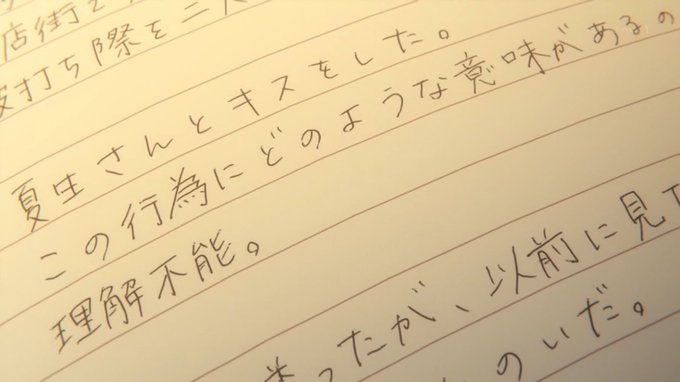 店街を
打ち際を二人
夏生さんとキスをした。
この行為にどのような意味があるの
理解不能。
ったが、以前に見
のいだ。